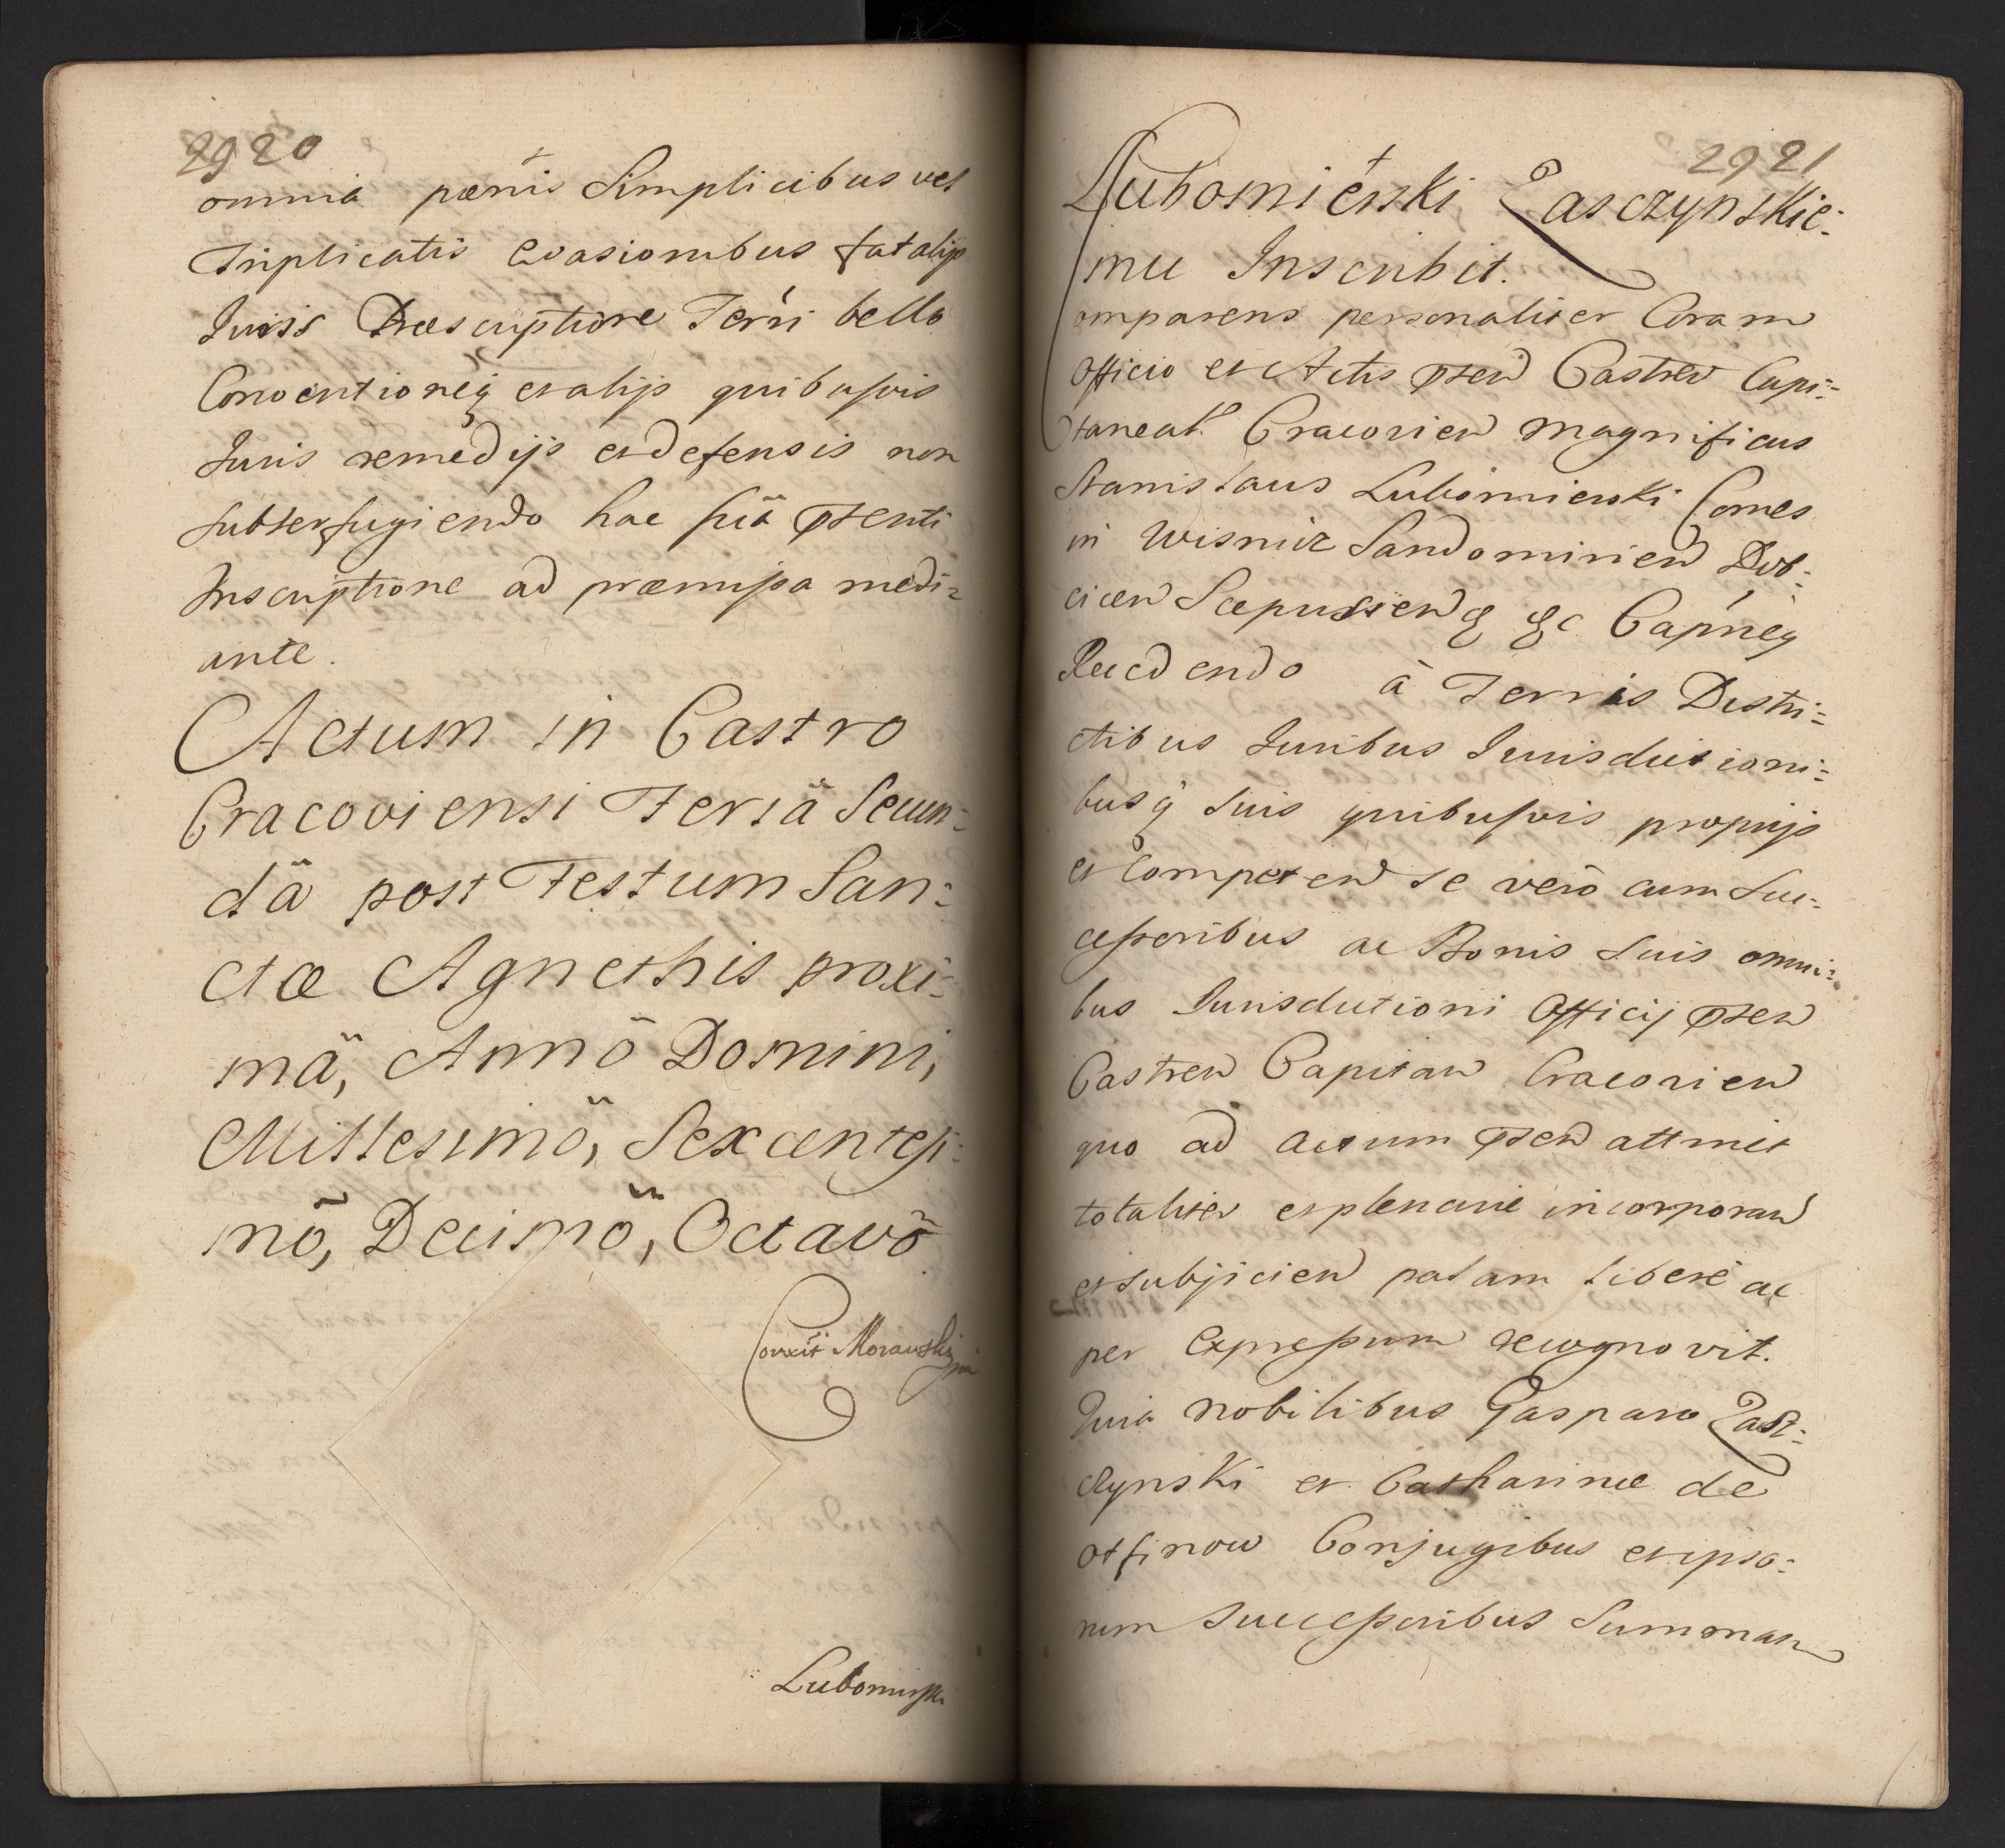 2920
omnia pænis Simplicibus vel
Triplicatis Evasionibus fatalijs
Juris Præscriptione Terri bello
Conventioneq et alijs quibusvis
Juris remedijs et defensis non
subterfugiendo hac suä pñenti
Inscriptione ad præmissa medi=
ante.
Actum in Castro
Cracoviensi Feriä Secun=
dä post Festum San=
ctæ Agnethis proxi=
mä, Annö Domini,
Millesimö, Sexcentesi=
mö, Decimö, Octavö
Corrxit Morawski
Lubomirski
2921
Lubomierski Łasczynskie=
mu Inscribit.
Comparens personaliter Coram
Officio et Actis pñen Castren Capi=
taneal Cracovien Magnificus
Stanislaus Lubomierski Comes
in Wisnicz Sandomirien Dob=
cicen Scepusien & &c Capneq
Recedendo à Terris Distri=
ctibus Juribus Jurisdictioni=
busq suis quibusvis proprijs
et Competen se verò cum Suc=
cessoribus ac Bonis Suis omni=
bus Jurisdictioni Officij pñen
Castren Capitan Cracovien
quo ad actum pñen attinet
totaliter et plenarie incorporan
et subjicien palam liberè ac
per Expressum recognovit.
Quia Nobilibus Gasparo Łast=
czynski et Catharinæ de
Otfinow Conjugibus et ipso=
rum Successoribus Summam